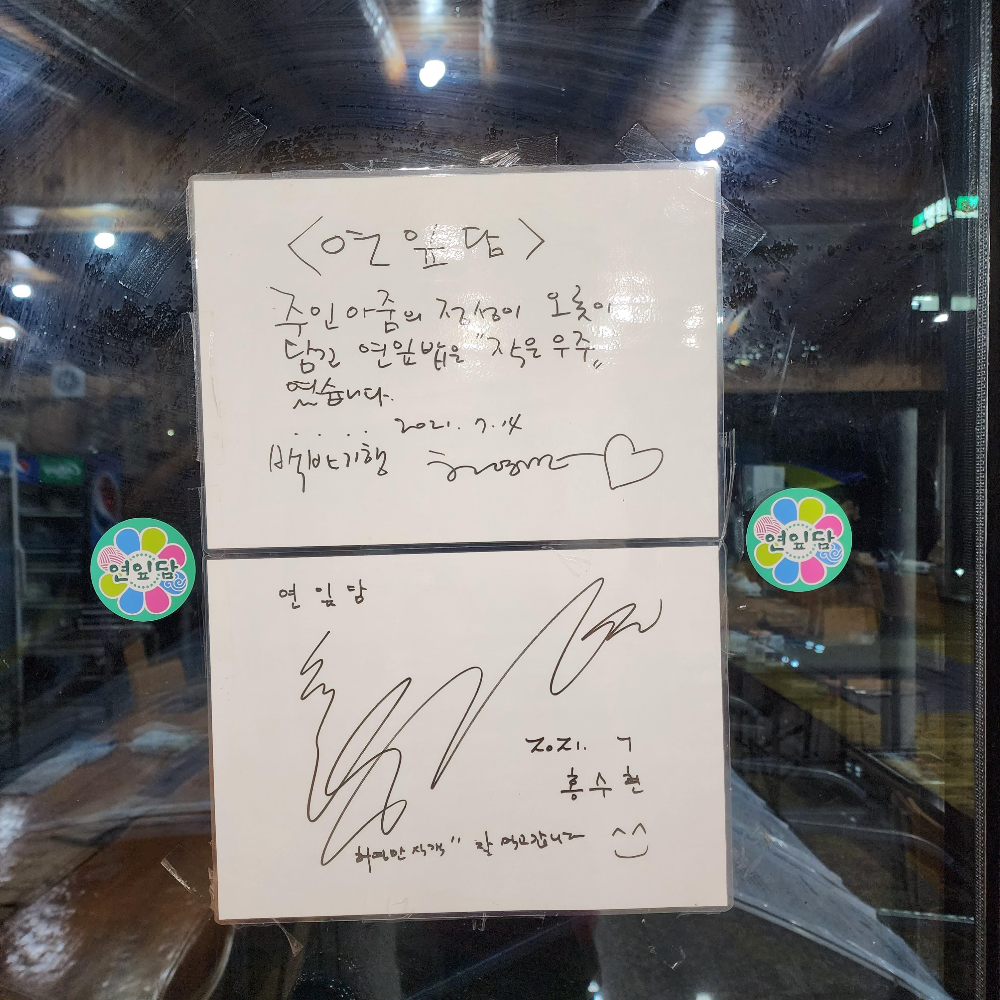 <연잎담>
주인아줌의 정성이 오롯이
담긴 연잎밥은 "작은 우주"
였습니다.
2021. 7. 14
백반기행
연잎담
연잎담
연잎담
2021. 7
홍수현
잘 먹고갑니다 ^^